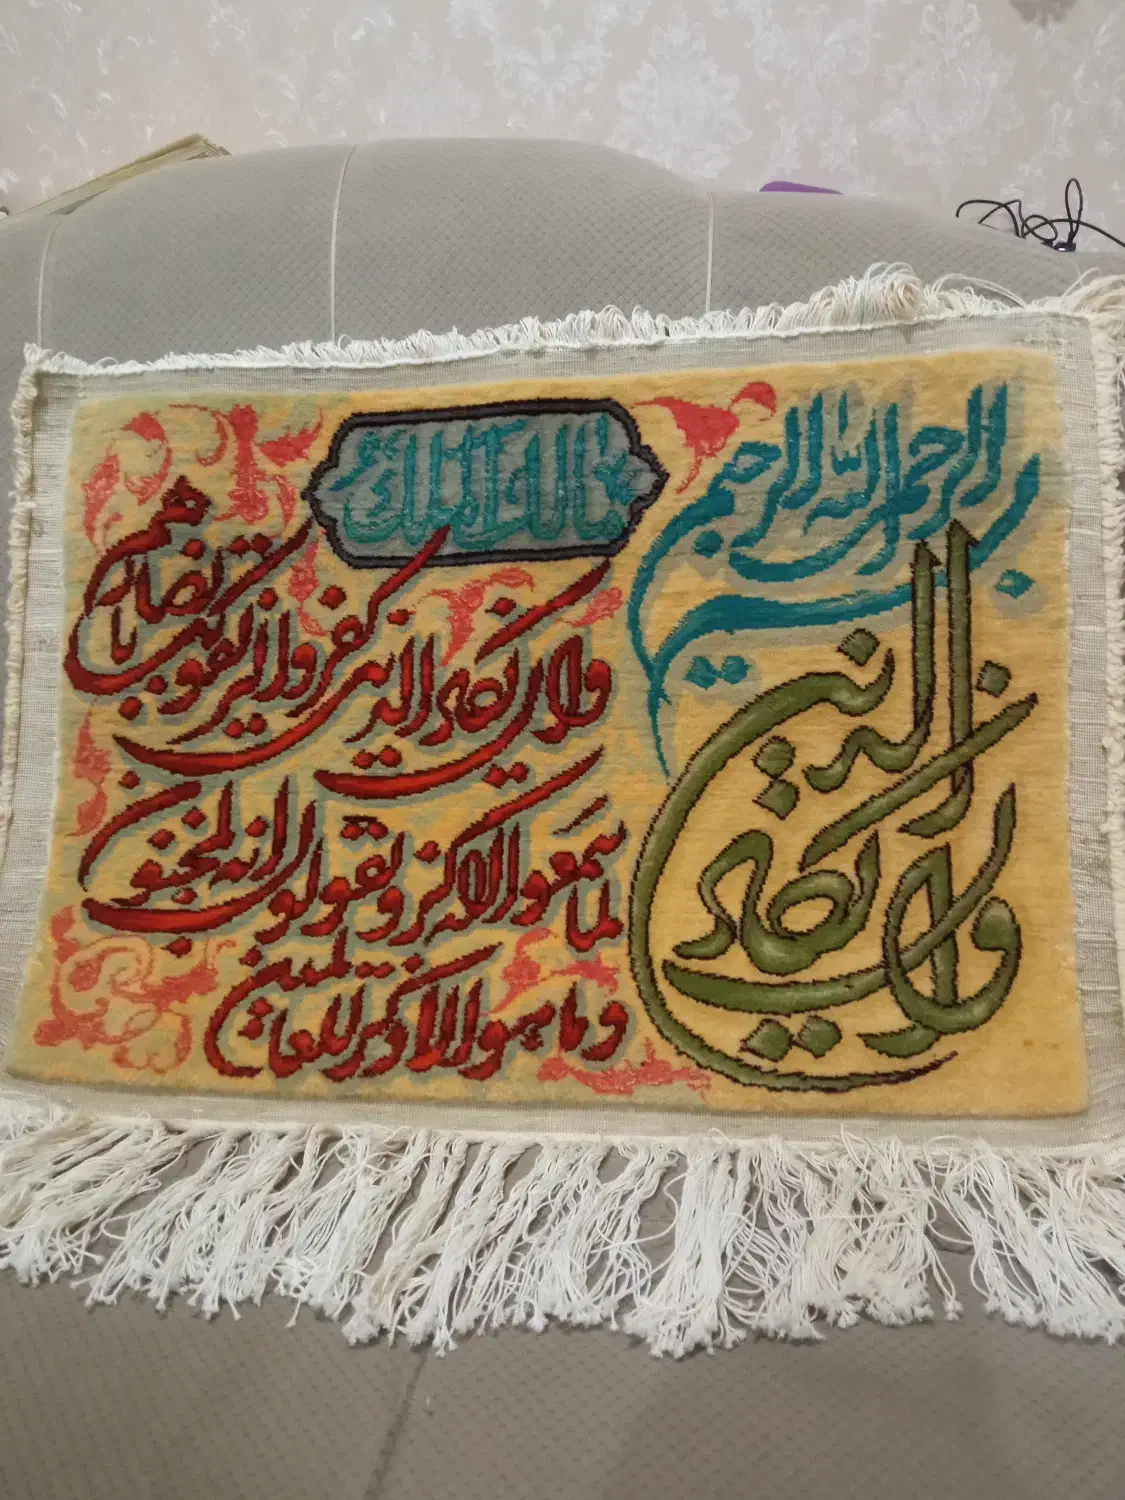 بسم الله الرحمن الرحیم
مالك الملك
وان یکاد الذین
وان یکاد الذین کفروا لیزلقونک بابصارهم
لما سمعوا الذکر و یقولون انه لمجنون
و ما هو الا ذکر للعالمین